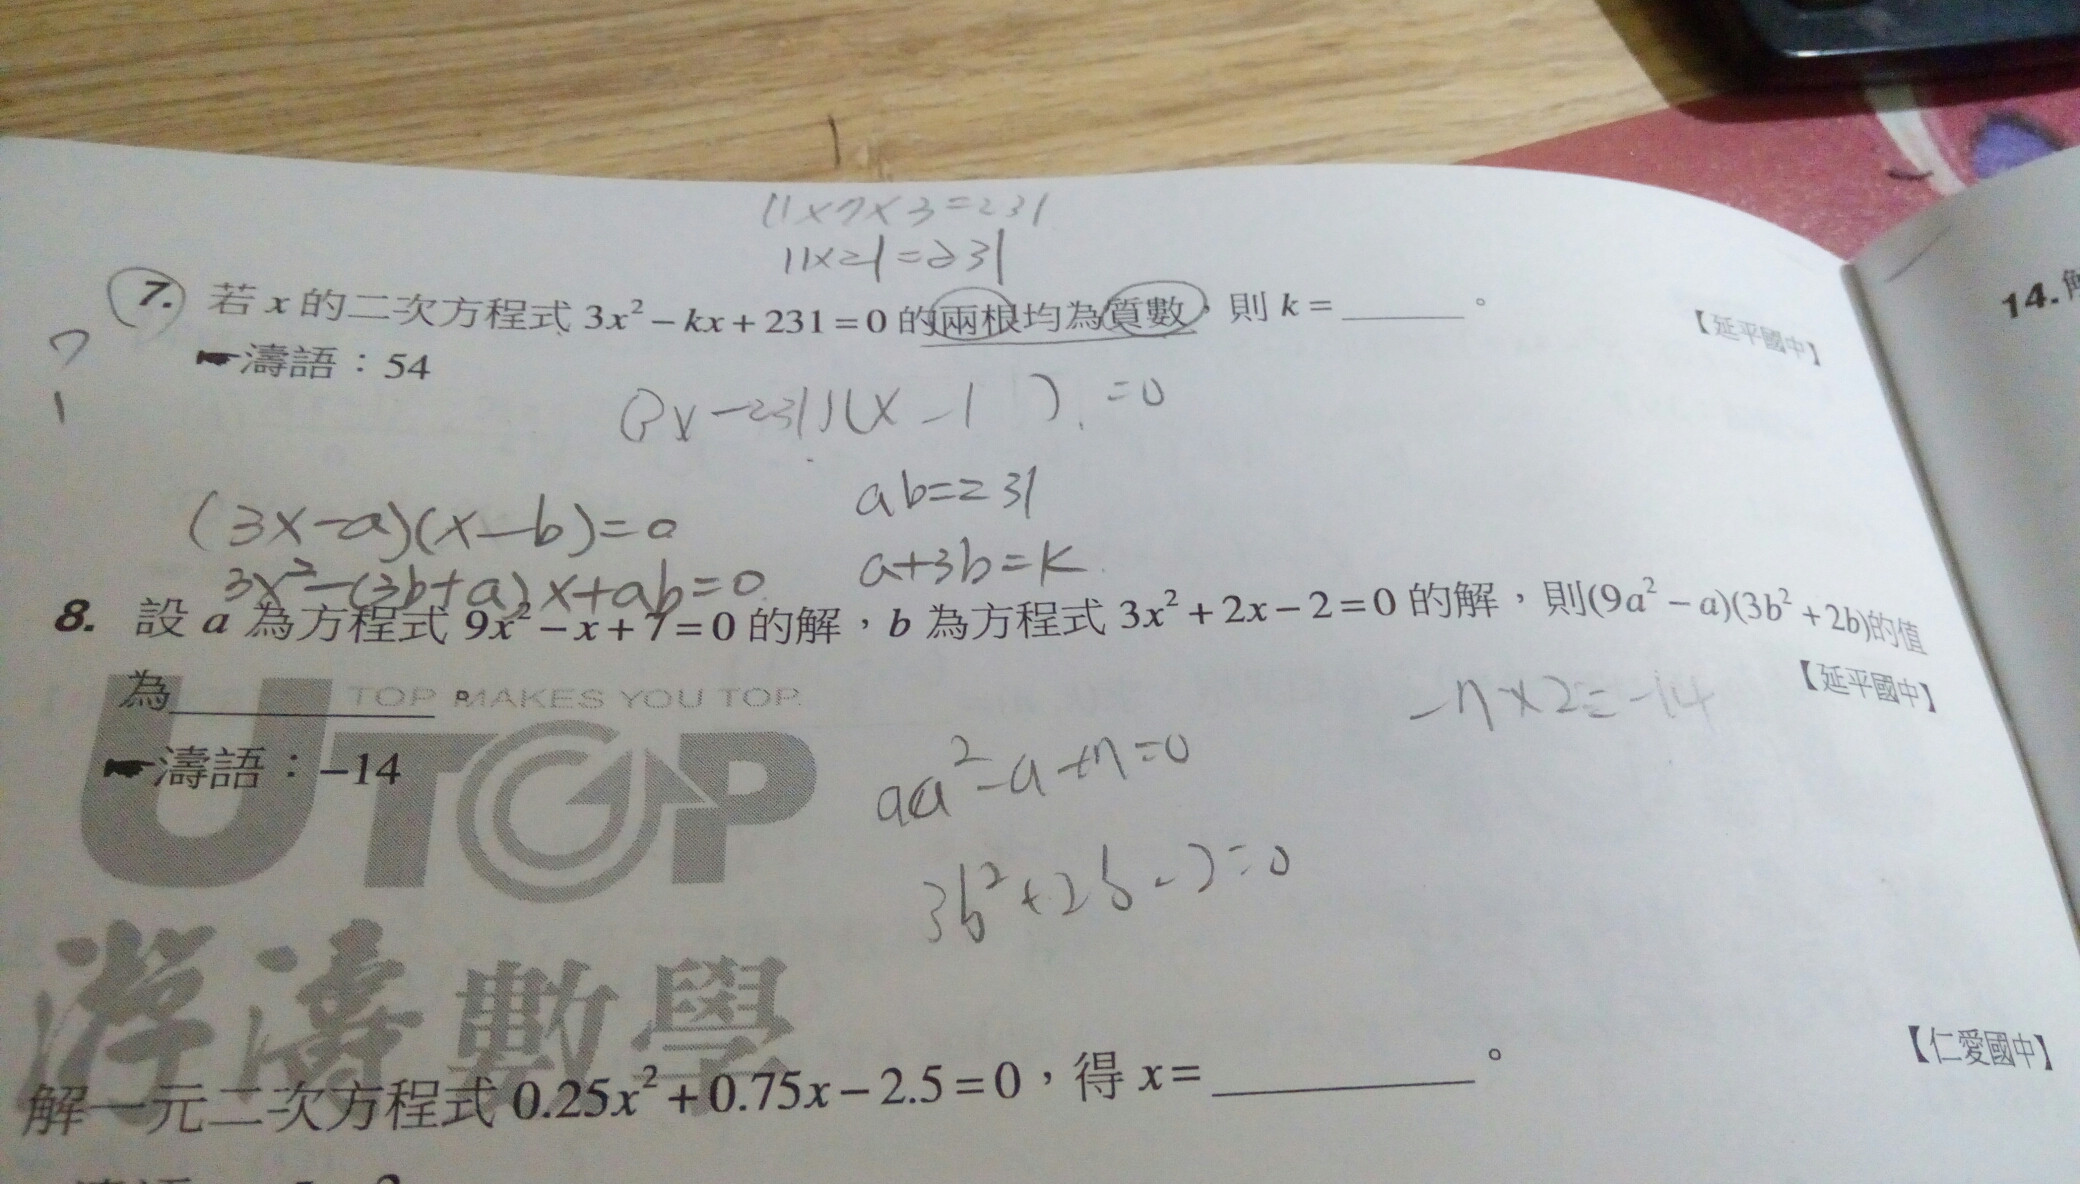 11×7×3=231
11×21=231
7. 若 x 的二次方程式 3x² − kx + 231 = 0 的兩根均為質數，則 k = ______。
【延平國中】
14.
?
☛濤語：54
1
(3x−231)(x−1 ) =0
ab=231
(3x−a)(x−b)=0
a+3b=k
3x²−(3b+a)x+ab=0
8. 設 a 為方程式 9x² − x + 7 = 0 的解，b 為方程式 3x² + 2x − 2 = 0 的解，則(9a² − a)(3b² + 2b)的值
為____________
【延平國中】
TOP MAKES YOU TOP
−7×2=−14
UTOP
☛濤語：−14
9a²−a+7=0
3b²+2b−2=0
濤數學
【仁愛國中】
解一元二次方程式 0.25x² + 0.75x − 2.5 = 0，得 x = ____________。